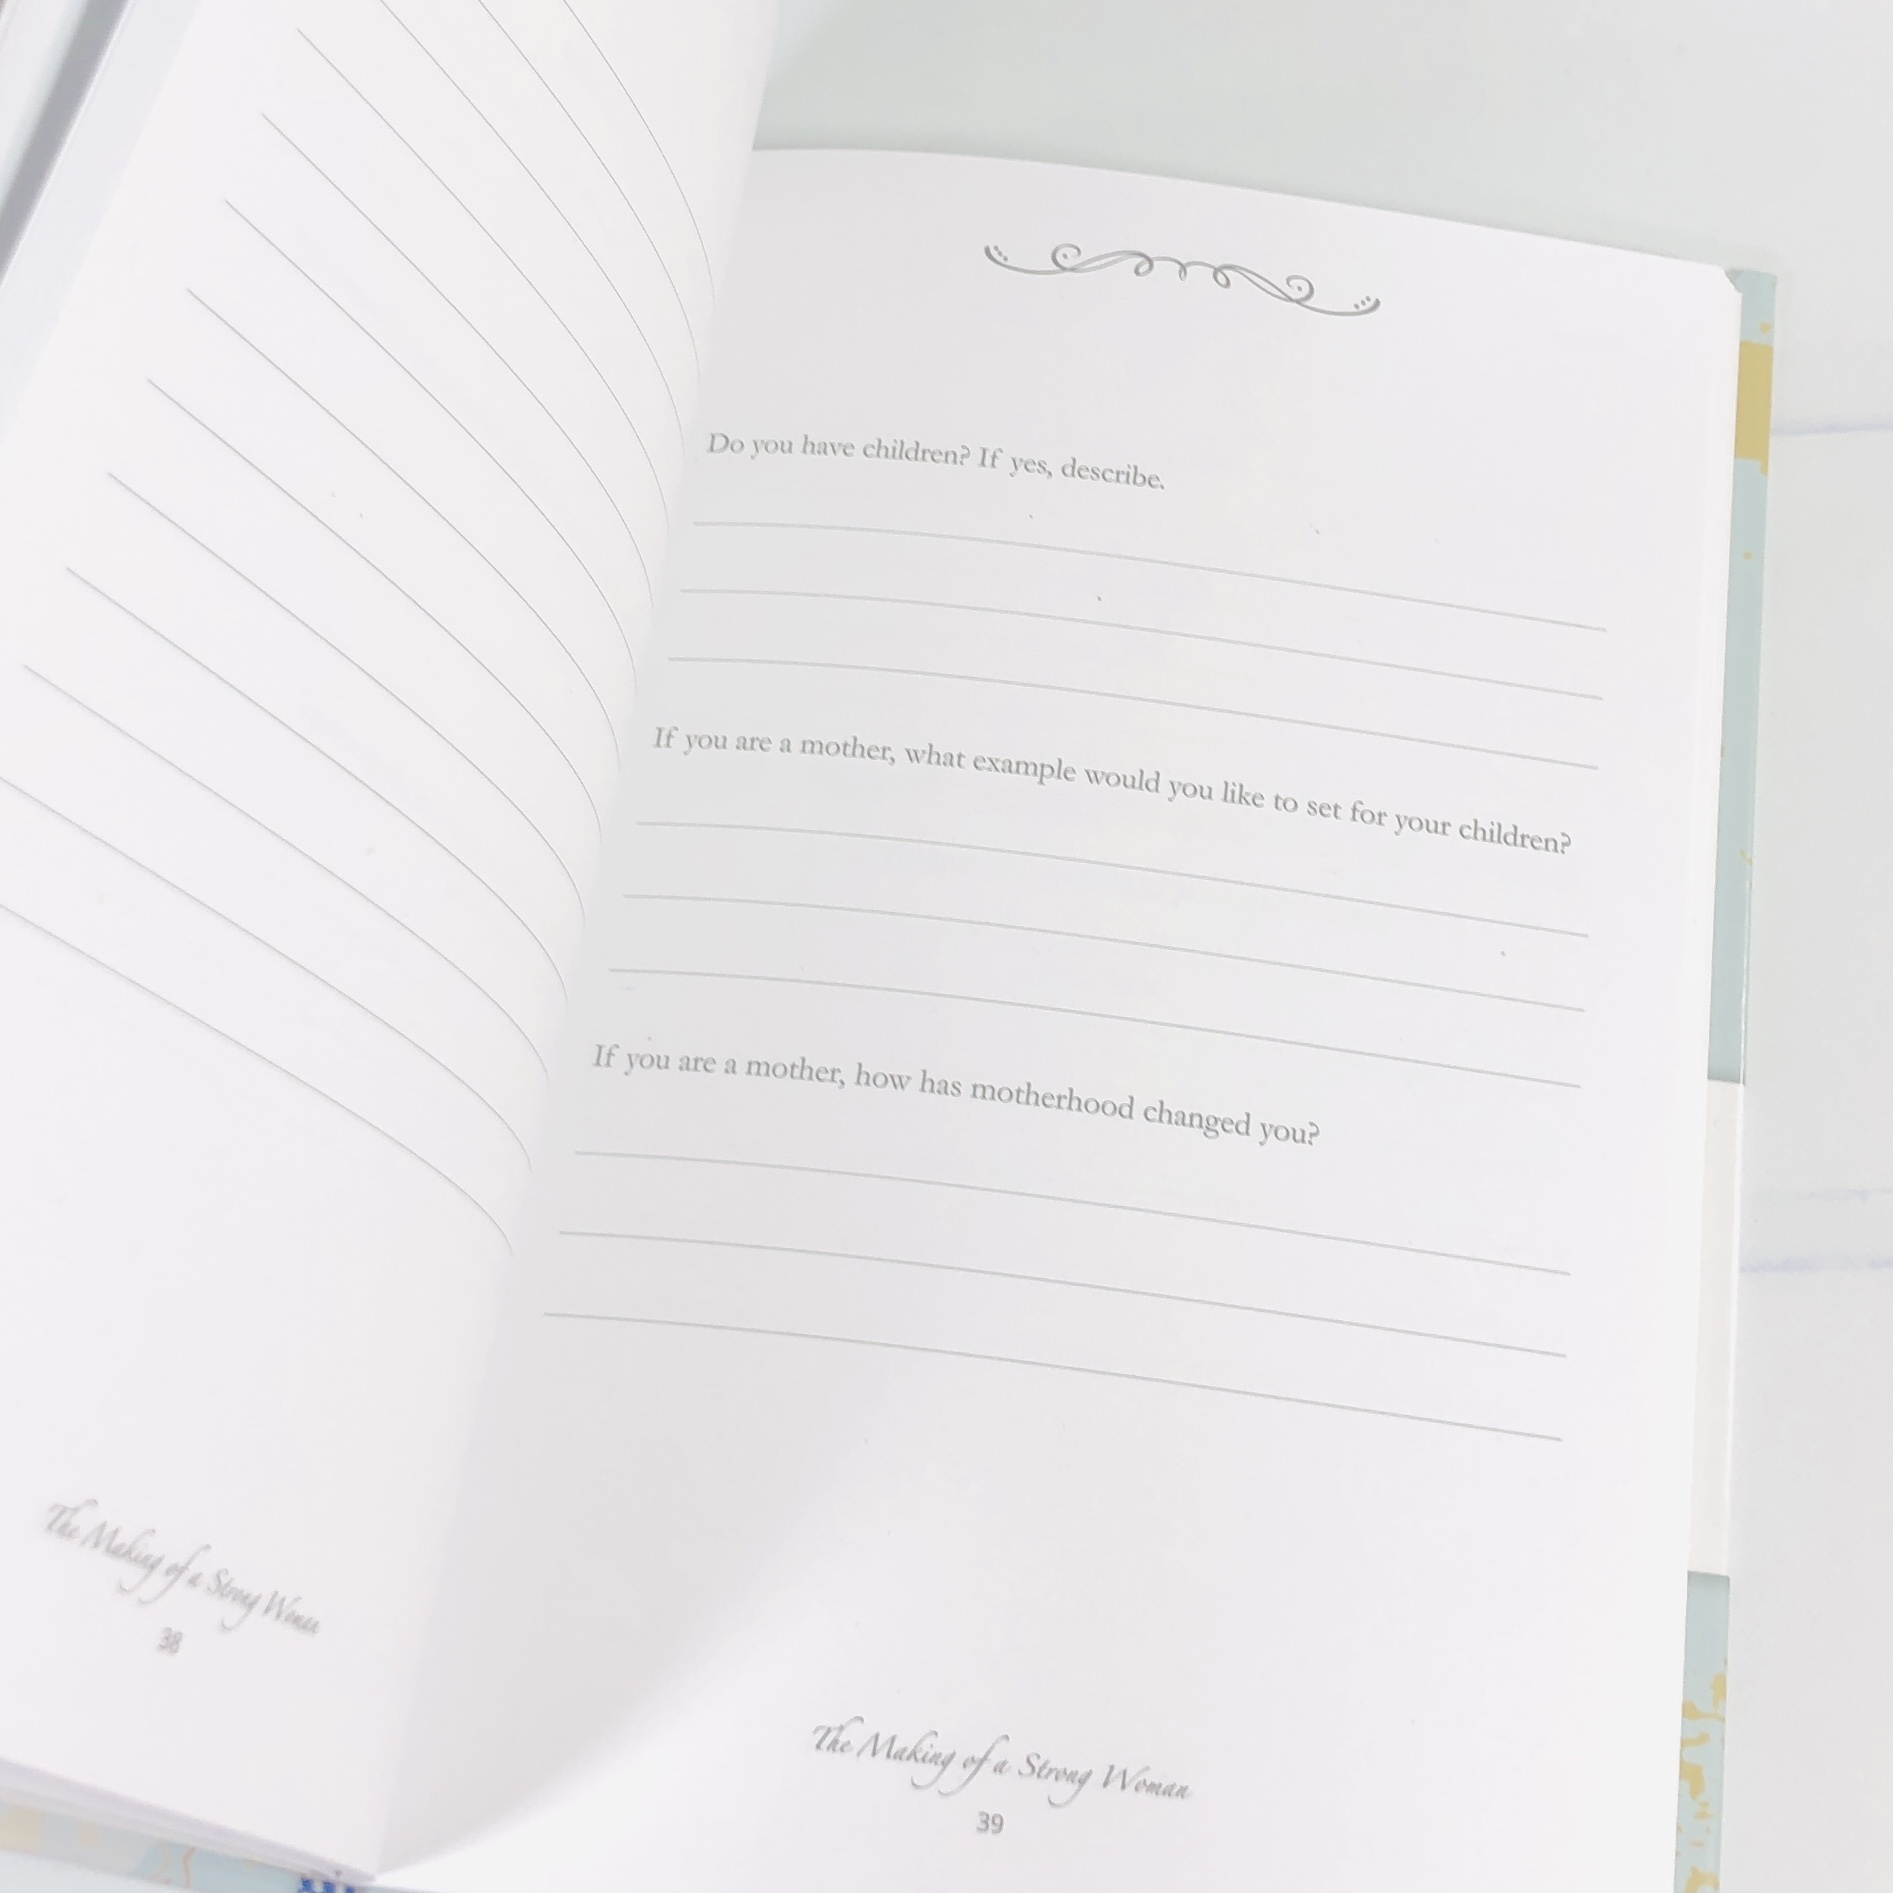 The Making of a Strong Woman
38
Do you have children? If yes, describe.
If you are a mother, what example would you like to set for your children?
If you are a mother, how has motherhood changed you?
The Making of a Strong Woman
39